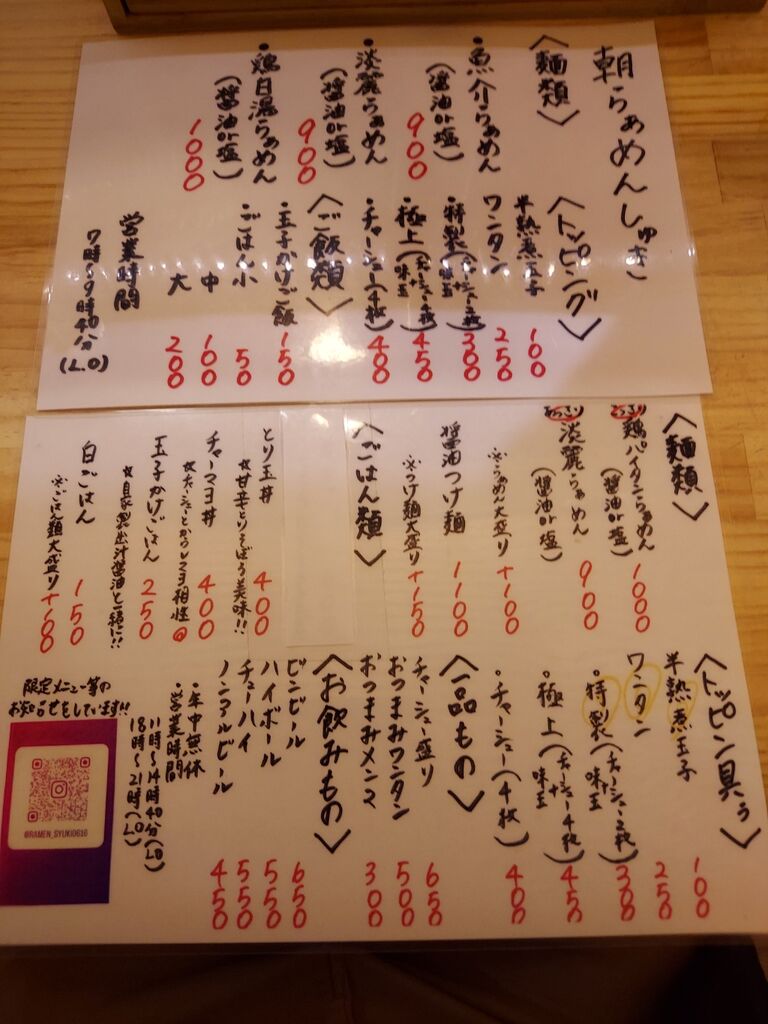 朝らぁめんしゅき
〈麺類〉
・魚介らぁめん
(醤油or塩)
900
・淡麗らぁめん
(醤油or塩)
900
・鶏白湯らぁめん
(醤油or塩)
1000
〈トッピング〉
半熟煮玉子 100
ワンタン 250
特製(チャーシュー2枚+味玉) 300
極上(チャーシュー4枚+味玉) 450
・チャーシュー(4枚) 400
〈ご飯類〉
・玉子かけご飯 150
・ごはん小 50
中 100
大 200
営業時間
7時〜9時40分(L.O)
〈麺類〉
鶏パイタンらぁめん
(醤油or塩)
1000
淡麗らぁめん
(醤油or塩)
900
※らぁめん大盛り +100
醤油つけ麺 1100
※つけ麺大盛り +150
〈ごはん類〉
とり玉丼 400
☆甘辛とりそぼろ美味!!
チャーマヨ丼 400
☆チャーシューとからしマヨ相性◎
玉子かけごはん 250
☆自家製出汁醤油と一緒に!!
白ごはん 150
※ごはん類大盛り +100
〈トッピン具ぅ〉
半熟煮玉子 100
ワンタン 250
・特製(チャーシュー2枚+味玉) 300
・極上(チャーシュー4枚+味玉) 450
・チャーシュー(4枚) 400
〈一品もの〉
チャーシュー盛り 650
おつまみワンタン 500
おつまみメンマ 300
〈お飲みもの〉
ビンビール 650
ハイボール 550
チューハイ 550
ノンアルビール 450
・年中無休
・営業時間
11時〜14時40分(LO)
18時〜21時(LO)
限定メニュー等の
お知らせをしています!!
@RAMEN_SYUKI0616